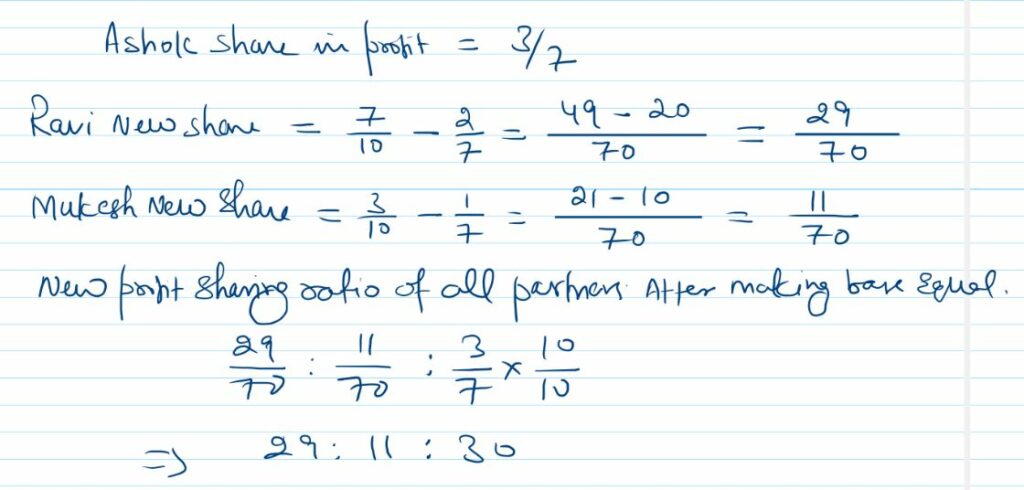 Ashok share in profit = 3/7
Ravi New share = 7/10 - 2/7 = 49 - 20/70 = 29/70
Mukesh New Share = 3/10 - 1/7 = 21 - 10/70 = 11/70
New profit sharing ratio of all partners After making base Equal.
29/70 : 11/70 : 3/7 × 10/10
⇒ 29 : 11 : 30